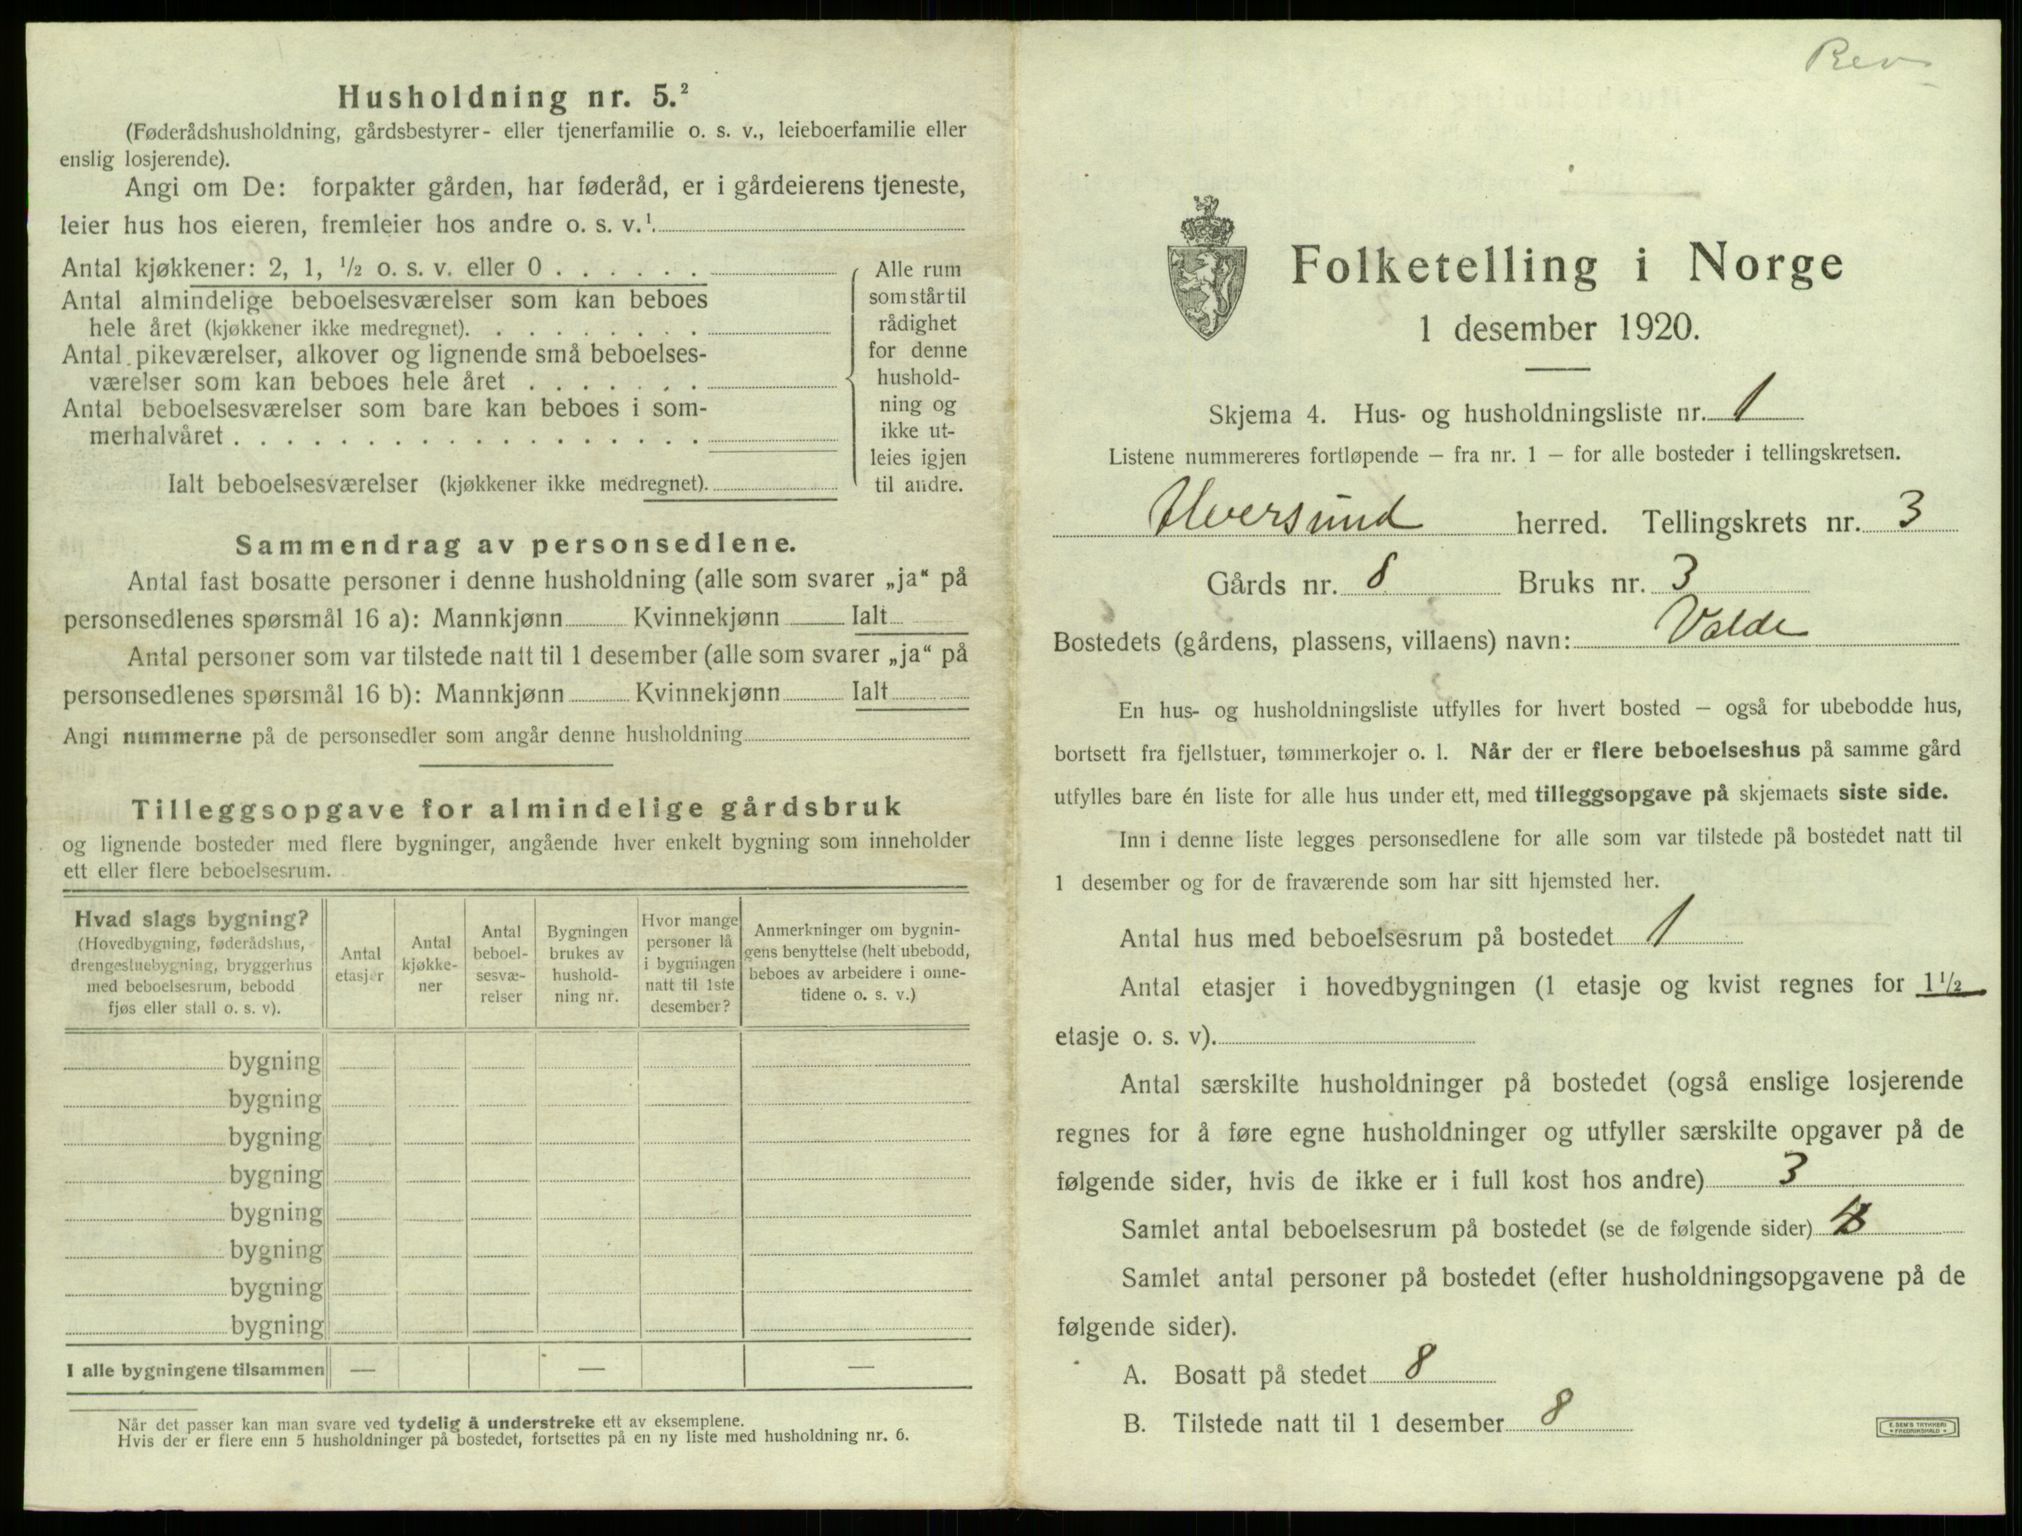 Husholdning nr. 5.²
(Føderådshusholdning, gårdsbestyrer- eller tjenerfamilie o. s. v., leieboerfamilie eller
enslig losjerende).
Angi om De: forpakter gården, har føderåd, er i gårdeierens tjeneste,
leier hus hos eieren, fremleier hos andre o. s. v.¹
Antal kjøkkener: 2, 1, ½ o. s. v. eller 0 . . . . . .
Antal almindelige beboelsesværelser som kan beboes
hele året (kjøkkener ikke medregnet). . . . . . . . .
Antal pikeværelser, alkover og lignende små beboelses-
værelser som kan beboes hele året . . . . . . .
Antal beboelsesværelser som bare kan beboes i som-
merhalvåret . . . . . . . . . . . . . . . . . .
Ialt beboelsesværelser (kjøkkener ikke medregnet).
Alle rum
som står til
rådighet
for denne
hushold-
ning og
ikke ut-
leies igjen
til andre.
Sammendrag av personsedlene.
Antal fast bosatte personer i denne husholdning (alle som svarer „ja“ på
personsedlenes spørsmål 16 a): Mannkjønn Kvinnekjønn Ialt
Antal personer som var tilstede natt til 1 desember (alle som svarer „ja“ på
personsedlenes spørsmål 16 b): Mannkjønn Kvinnekjønn Ialt
Angi nummerne på de personsedler som angår denne husholdning
Tilleggsopgave for almindelige gårdsbruk
og lignende bosteder med flere bygninger, angående hver enkelt bygning som inneholder
ett eller flere beboelsesrum.
Hvad slags bygning?
(Hovedbygning, føderådshus,
drengestuebygning, bryggerhus
med beboelsesrum, bebodd
fjøs eller stall o. s. v).
Antal
etasjer
Antal
kjøkke-
ner
Antal
beboel-
sesvæ-
relser
Bygningen
brukes av
hushold-
ning nr.
Hvor mange
personer lå
i bygningen
natt til 1ste
desember?
Anmerkninger om bygnin-
gens benyttelse (helt ubebodd,
beboes av arbeidere i onne-
tidene o. s. v.)
bygning
bygning
bygning
bygning
bygning
bygning
bygning
bygning
I alle bygningene tilsammen — — —
Når det passer kan man svare ved tydelig å understreke ett av eksemplene.
Hvis der er flere enn 5 husholdninger på bostedet, fortsettes på en ny liste med husholdning nr. 6.
Rev
Folketelling i Norge
1 desember 1920.
Skjema 4. Hus- og husholdningsliste nr. 1
Listene nummereres fortløpende – fra nr. 1 – for alle bosteder i tellingskretsen.
Hversund herred. Tellingskrets nr. 3
Gårds nr. 8 Bruks nr. 3
Bostedets (gårdens, plassens, villaens) navn: Valde
En hus- og husholdningsliste utfylles for hvert bosted – også for ubebodde hus,
bortsett fra fjellstuer, tømmerkojer o. l. Når der er flere beboelseshus på samme gård
utfylles bare én liste for alle hus under ett, med tilleggsopgave på skjemaets siste side.
Inn i denne liste legges personsedlene for alle som var tilstede på bostedet natt til
1 desember og for de fraværende som har sitt hjemsted her.
Antal hus med beboelsesrum på bostedet 1
Antal etasjer i hovedbygningen (1 etasje og kvist regnes for 1½
etasje o. s. v).
Antal særskilte husholdninger på bostedet (også enslige losjerende
regnes for å føre egne husholdninger og utfyller særskilte opgaver på de
følgende sider, hvis de ikke er i full kost hos andre) 3
Samlet antal beboelsesrum på bostedet (se de følgende sider)
Samlet antal personer på bostedet (efter husholdningsopgavene på de
følgende sider).
A. Bosatt på stedet 8
B. Tilstede natt til 1 desember 8
E. SEM'S TRYKKERI
FREDRIKSHALD